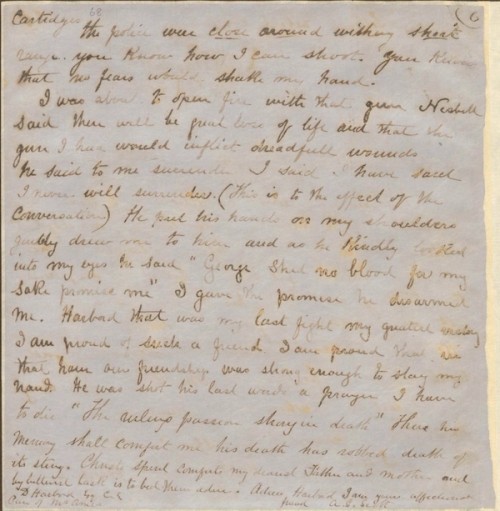 Cartridges 68 (6
the police were close around within short
range. you know how I can shoot. you know
that no fears would shake my hand.
I was about to open fire with that gun Nesbitt
said there will be great loss of life and that the
gun I had would inflict dreadfull wounds
he said to me surrender I said I have said
I never will surrender. (This is to the effect of the
Conversation) He put his hands on my shoulders
quietly drew me to him and as he kindly looked
into my eyes he said "George Shed no blood for my
Sake promise me" I gave the promise he disarmed
me. Harbad that was my last fight my greatest victory
I am proud of such a friend. I am proud that in
that hour our friendship was strong enough to stay my
hand. He was shot his last words a prayer I have
to die "The ruling passion strong in death" There his
Memory shall comfort me his death has robbed death of
its sting. Christ's speed comfort my dearest Father and mother and
my bitterest task is to bid them adieu. Adieu Harbad I am yours affectionate
D Harbad Esq friend